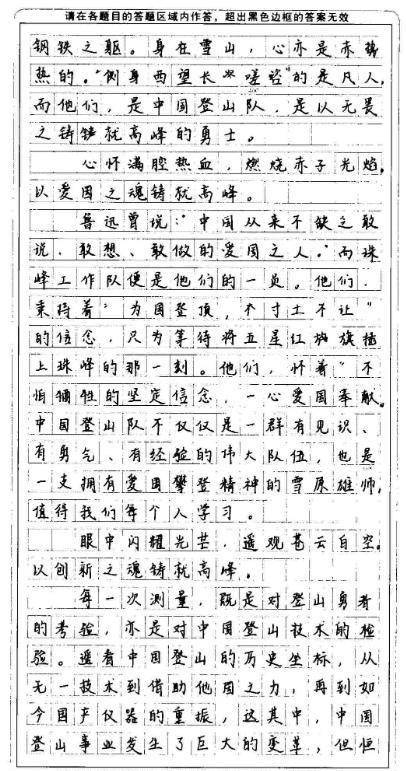 请在各题目的答题区域内作答，超出黑色边框的答案无效
钢铁之躯。身在雪山，心亦是赤诚
热的。"侧身西望长咨嗟"的是凡人，
而他们，是中国登山队，是以无畏
之铸就高峰的勇士。
心怀满腔热血，燃烧赤子光焰，
以爱国之魂铸就高峰。
鲁迅曾说："中国从来不缺乏敢
说、敢想、敢做的爱国之人。"而珠
峰工作队便是他们的一员。他们，
秉持着"为国登顶，寸土不让"
的信念，只为等待将五星红旗插
上珠峰的那一刻。他们，怀着"不
怕牺牲的坚定信念，一心爱国奉献。
中国登山队不仅仅是一群有见识、
有勇气、有经验的伟大队伍，也是
一支拥有爱国攀登精神的雪原雄师，
值得我们每个人学习。
眼中闪耀光芒，遥观苍云白空。
以创新之魂铸就高峰。
每一次测量，既是对登山勇者
的考验，亦是对中国登山技术的检
验。遥看中国登山的历史坐标，从
无一技术到借助他国之力，再到如
今国产仪器的重振，这其中，中国
登山事业发生了巨大的变革，但恒